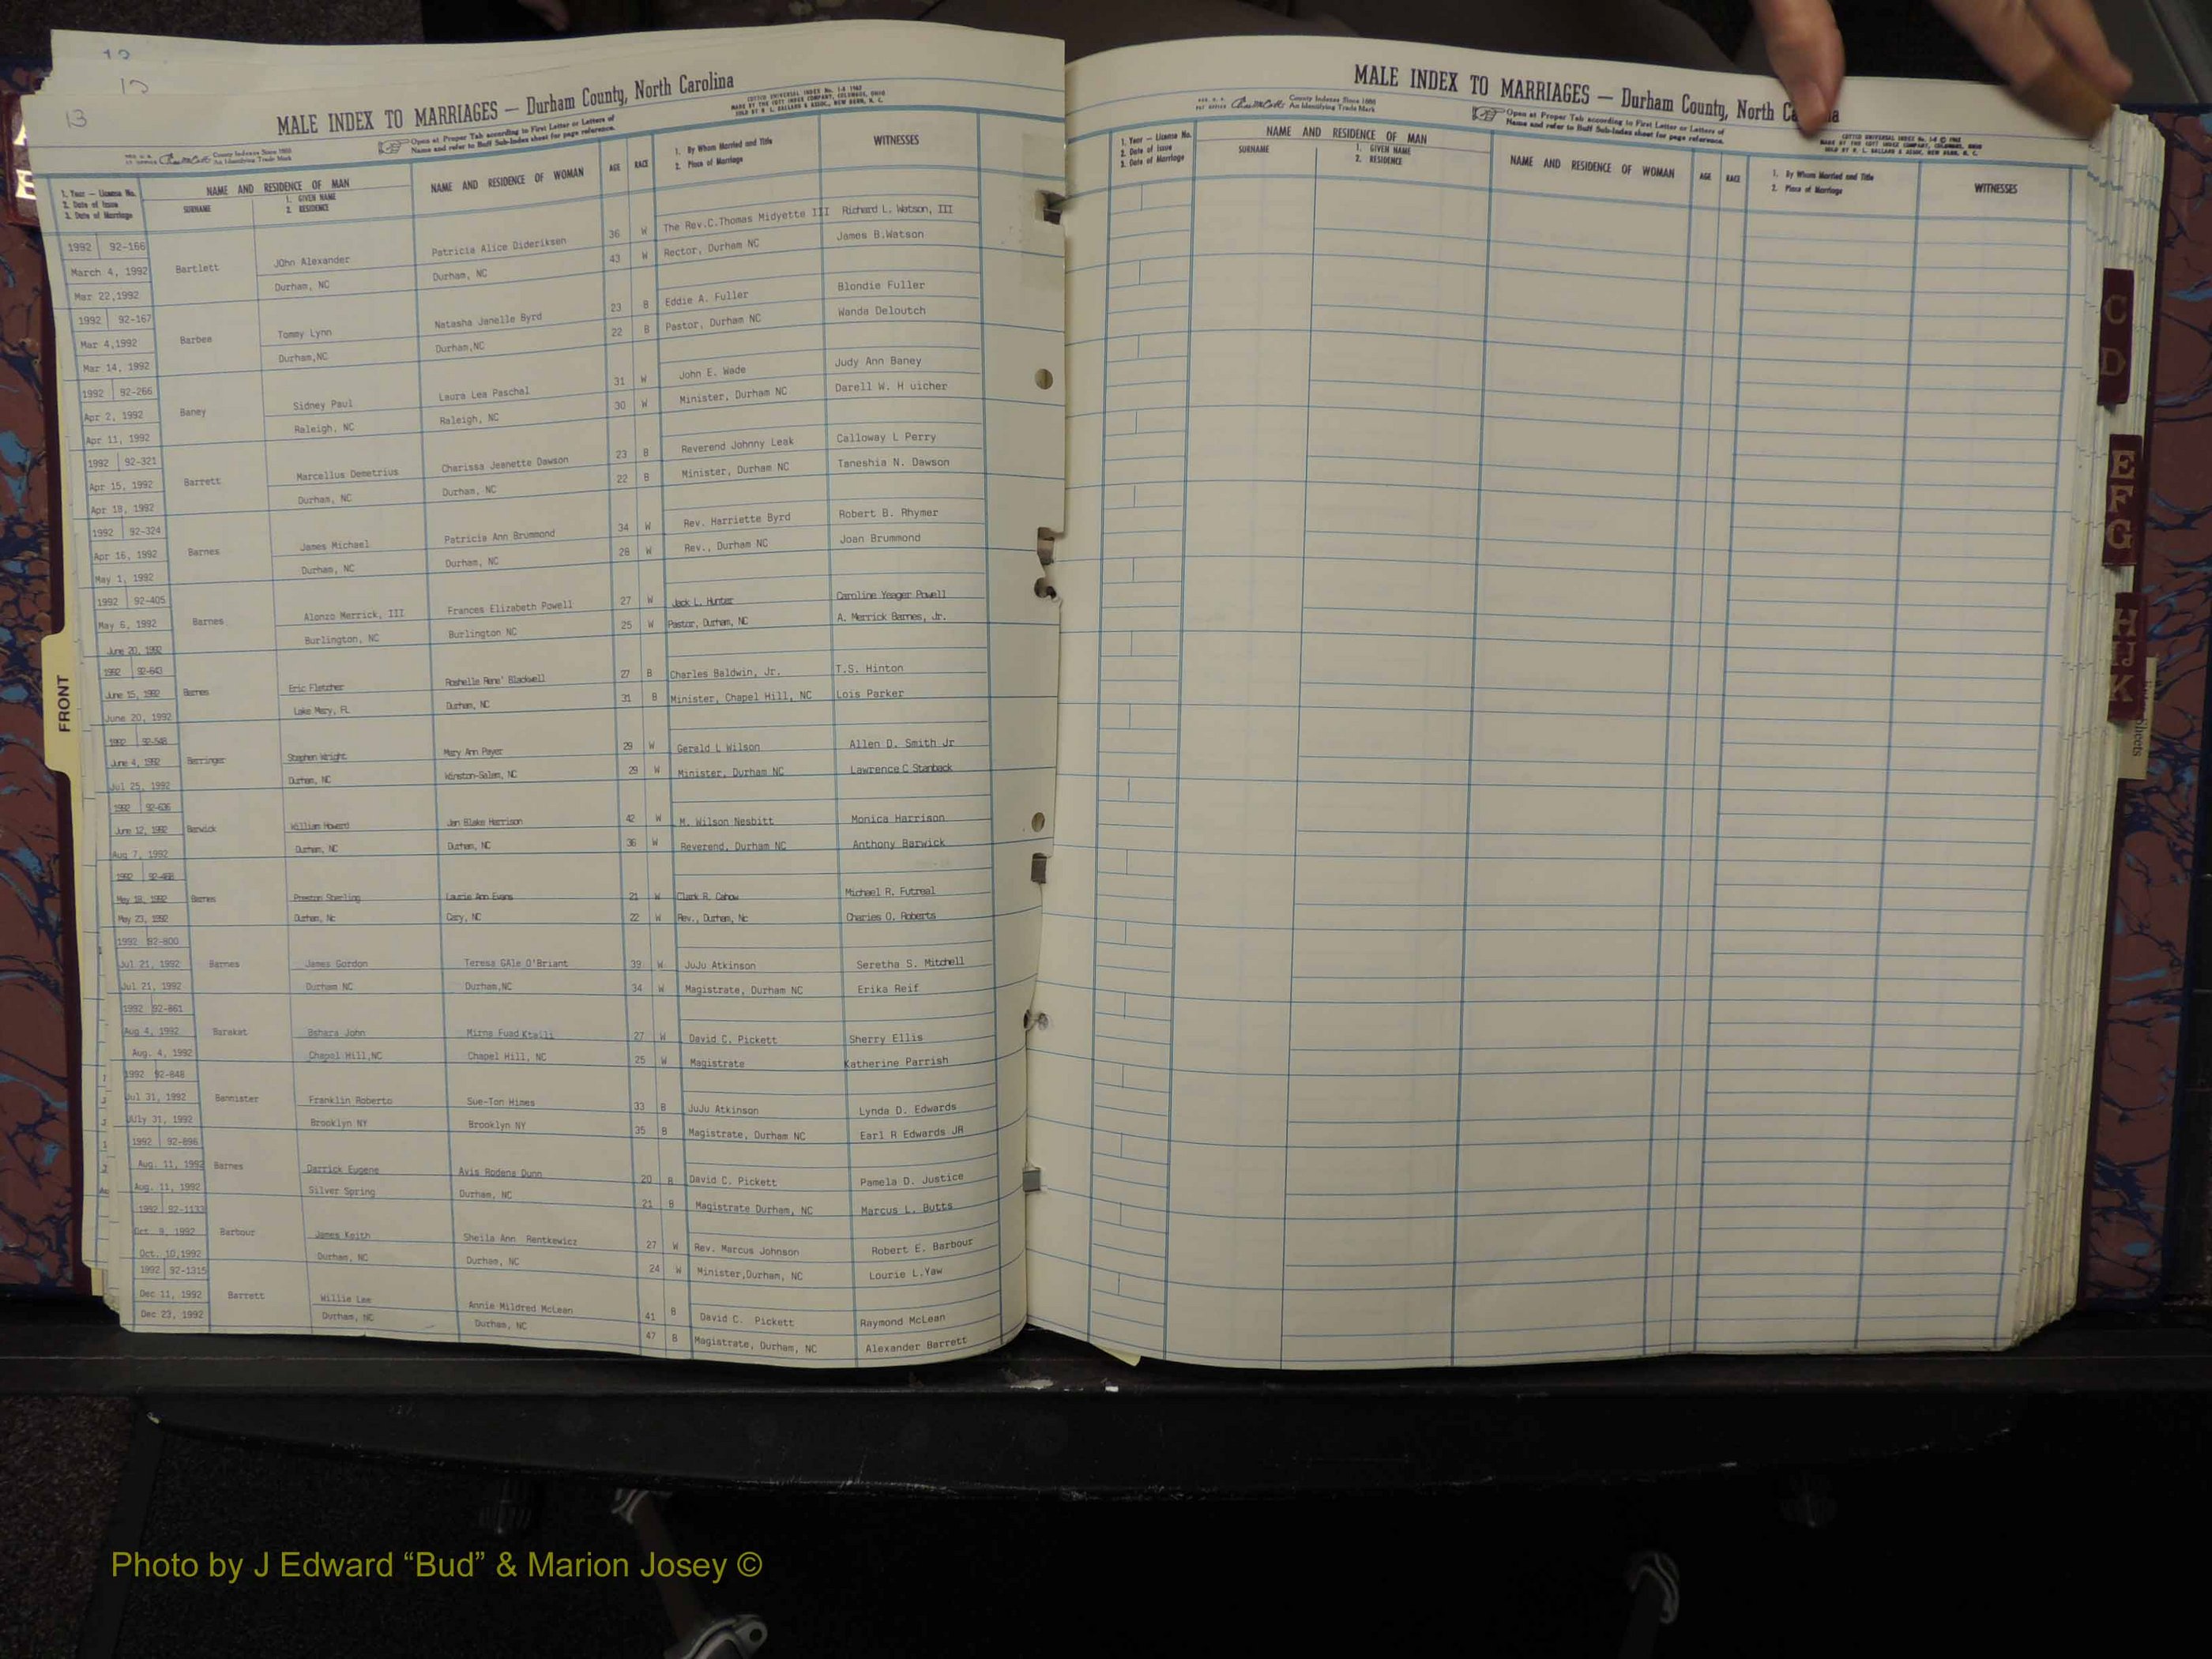 12
13
13
MALE INDEX TO MARRIAGES — Durham County, North Carolina
COTTED UNIVERSAL INDEX No. 1-S 1962
MADE BY THE COTT INDEX COMPANY, COLUMBUS, OHIO
SOLD BY R. L. BALLARD & ASSOC., NEW BERN, N. C.
County Indexes Since 1888
An Identifying Trade Mark
Open at Proper Tab according to First Letter or Letters of
Name and refer to Buff Sub-Index sheet for page reference.
1. Year — License No.
2. Date of Issue
3. Date of Marriage
NAME AND RESIDENCE OF MAN
SURNAME
1. GIVEN NAME
2. RESIDENCE
NAME AND RESIDENCE OF WOMAN
AGE
RACE
1. By Whom Married and Title
2. Place of Marriage
WITNESSES
1992 92-166 36 W The Rev.C.Thomas Midyette III Richard L. Watson, III
March 4, 1992 Bartlett JOhn Alexander Patricia Alice Dideriksen 43 W Rector, Durham NC James B.Watson
Mar 22,1992 Durham, NC Durham, NC
1992 92-167 23 B Eddie A. Fuller Blondie Fuller
Mar 4,1992 Barbee Tommy Lynn Natasha Janelle Byrd 22 B Pastor, Durham NC Wanda Deloutch
Mar 14, 1992 Durham,NC Durham,NC
1992 92-266 31 W John E. Wade Judy Ann Baney
Apr 2, 1992 Baney Sidney Paul Laura Lea Paschal 30 W Minister, Durham NC Darell W. H uicher
Apr 11, 1992 Raleigh, NC Raleigh, NC
1992 92-321 23 B Reverend Johnny Leak Calloway L Perry
Apr 15, 1992 Barrett Marcellus Demetrius Charissa Jeanette Dawson 22 B Minister, Durham NC Taneshia N. Dawson
Apr 18, 1992 Durham, NC Durham, NC
1992 92-324 34 W Rev. Harriette Byrd Robert B. Rhymer
Apr 16, 1992 Barnes James Michael Patricia Ann Brummond 28 W Rev., Durham NC Joan Brummond
May 1, 1992 Durham, NC Durham, NC
1992 92-405 27 W Jack L. Hunter Caroline Yeager Powell
May 6, 1992 Barnes Alonzo Merrick, III Frances Elizabeth Powell 25 W Pastor, Durham, NC A. Merrick Barnes, Jr.
June 20, 1992 Burlington, NC Burlington NC
1992 92-643 27 B Charles Baldwin, Jr. T.S. Hinton
June 15, 1992 Barnes Eric Fletcher Roshelle Rene' Blackwell 31 B Minister, Chapel Hill, NC Lois Parker
June 20, 1992 Lake Mary, FL Durham, NC
1992 92-548 29 W Gerald L Wilson Allen D. Smith Jr
June 4, 1992 Barringer Stephen Wright Mary Ann Payer 29 W Minister, Durham NC Lawrence C Stanback
Jul 25, 1992 Durham, NC Winston-Salem, NC
1992 92-636 42 W M. Wilson Nesbitt Monica Harrison
June 12, 1992 Barwick William Howard Jan Blake Harrison 36 W Reverend, Durham NC Anthony Barwick
Aug 7, 1992 Durham, NC Durham, NC
1992 92-468 Michael R. Futreal
May 18, 1992 Barnes Preston Sterling Laurie Ann Evans 21 W Clark R. Cahow
May 23, 1992 Durham, Nc Cary, NC 22 W Rev., Durham, Nc Charles O. Roberts
1992 92-800
Jul 21, 1992 Barnes James Gordon Teresa GAle O'Briant 39 W JuJu Atkinson Seretha S. Mitchell
Jul 21, 1992 Durham NC Durham,NC 34 W Magistrate, Durham NC Erika Reif
1992 92-861
Aug 4, 1992 Barakat Bshara John Mirna Fuad Ktaili 27 W David C. Pickett Sherry Ellis
Aug. 4, 1992 Chapel Hill,NC Chapel Hill, NC 25 W Magistrate Katherine Parrish
1992 92-848
Jul 31, 1992 Bannister Franklin Roberto Sue-Ton Himes 33 B JuJu Atkinson Lynda D. Edwards
JUly 31, 1992 Brooklyn NY Brooklyn NY 35 B Magistrate, Durham NC Earl R Edwards JR
1992 92-896
Aug. 11, 1992 Barnes Darrick Eugene Avis Rodena Dunn 20 B David C. Pickett Pamela D. Justice
Aug. 11, 1992 Silver Spring Durham, NC 21 B Magistrate Durham, NC Marcus L. Butts
1992 92-1133
Oct. 9, 1992 Barbour James Keith Sheila Ann Rentkewicz 27 W Rev. Marcus Johnson Robert E. Barbour
Oct. 10,1992 Durham, NC Durham, NC 24 W Minister,Durham, NC Lourie L.Yaw
1992 92-1315
Dec 11, 1992 Barrett Willie Lee Annie Mildred McLean 41 B David C. Pickett Raymond McLean
Dec 23, 1992 Durham, NC Durham, NC 47 B Magistrate, Durham, NC Alexander Barrett
MALE INDEX TO MARRIAGES — Durham County, North Ca a
County Indexes Since 1888
An Identifying Trade Mark
Open at Proper Tab according to First Letter or Letters of
Name and refer to Buff Sub-Index sheet for page reference.
COTTED UNIVERSAL INDEX No. 1-S © 1962
MADE BY THE COTT INDEX COMPANY, COLUMBUS, OHIO
SOLD BY R. L. BALLARD & ASSOC, NEW BERN, N. C.
1. Year — License No.
2. Date of Issue
3. Date of Marriage
NAME AND RESIDENCE OF MAN
SURNAME
1. GIVEN NAME
2. RESIDENCE
NAME AND RESIDENCE OF WOMAN
AGE
RACE
1. By Whom Married and Title
2. Place of Marriage
WITNESSES
FRONT
C
D
E
F
G
H
IJ
K
Photo by J Edward “Bud” & Marion Josey ©